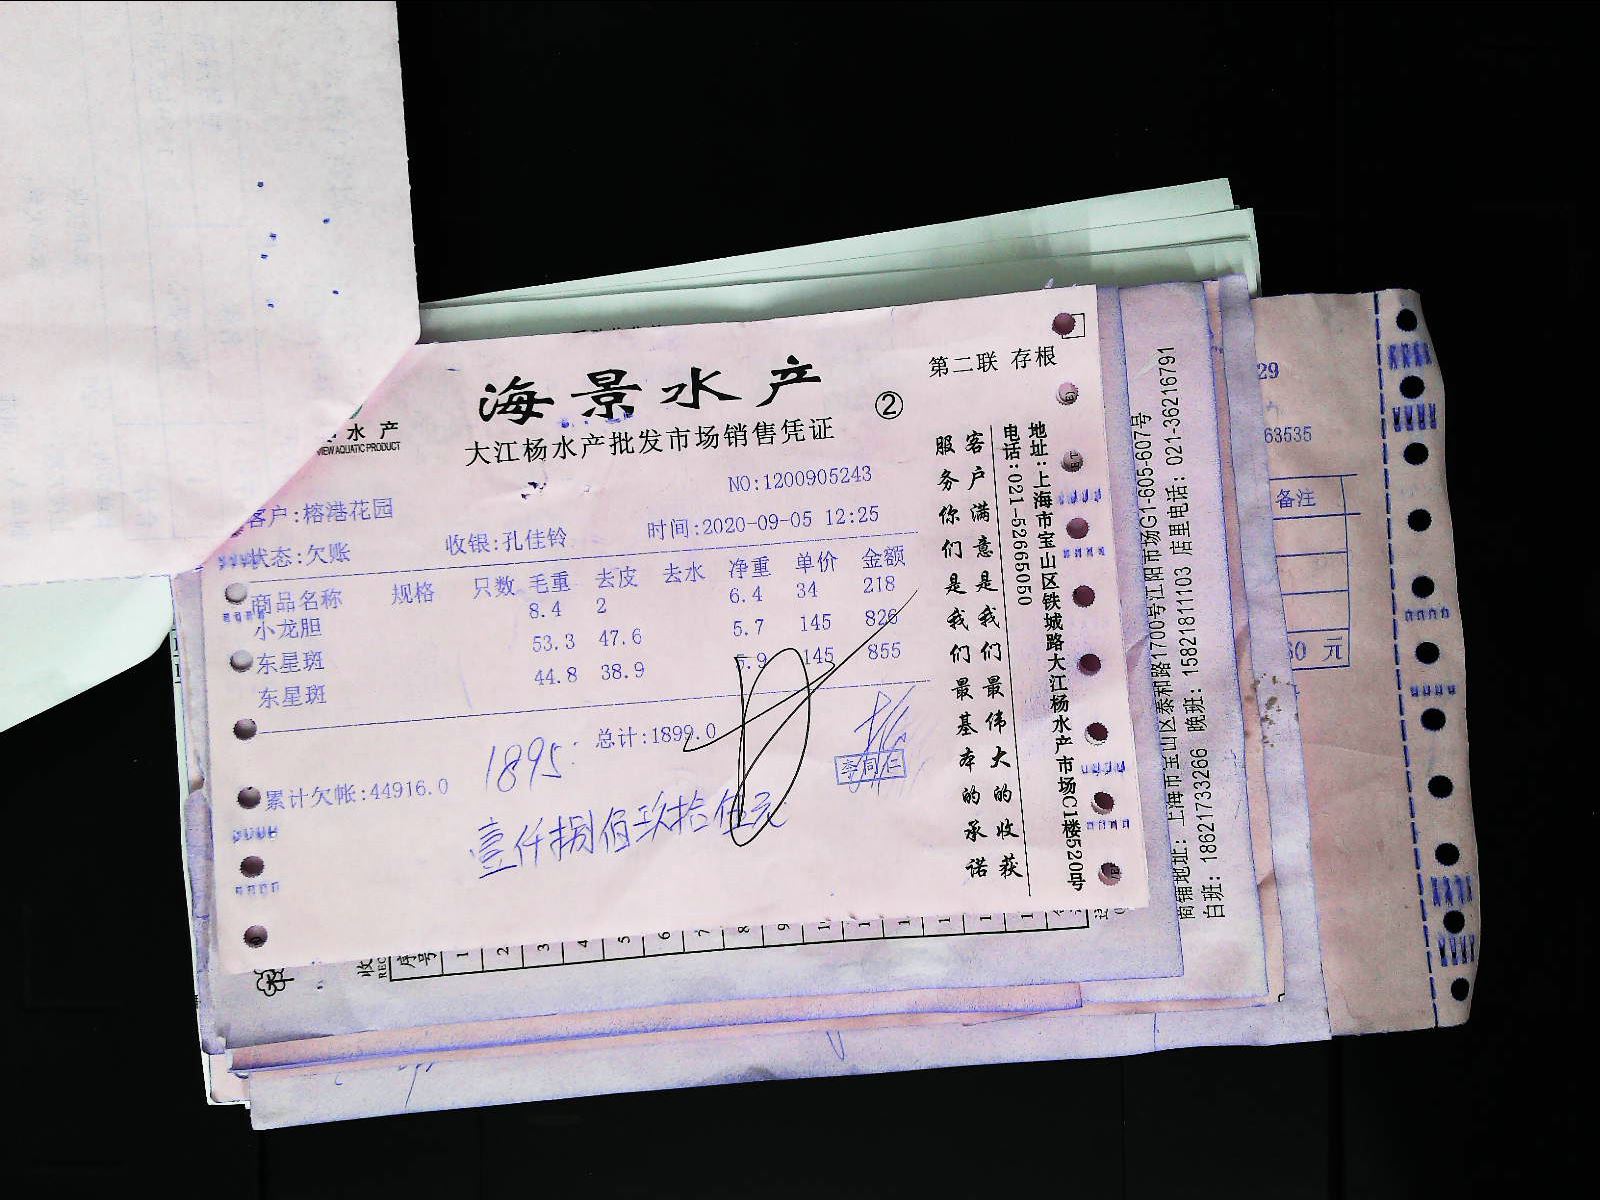 海景水产
②
第二联 存根
水产
VIEW AQUATIC PRODUCT
大江杨水产批发市场销售凭证
NO:1200905243
客户:榕港花园
状态:欠账
收银:孔佳铃
时间:2020-09-05 12:25
商品名称 规格 只数 毛重 去皮 去水 净重 单价 金额
小龙胆 8.4 2 6.4 34 218
东星斑 53.3 47.6 5.7 145 826
东星斑 44.8 38.9 5.9 145 855
总计:1899.0
1895
累计欠帐:44916.0
壹仟捌佰玖拾伍元
李同仁
客户满意是我们最伟大的收获
服务你们是我们最基本的承诺
地址:上海市宝山区铁城路大江杨水产市场C1楼520号
电话:021-52665050
商铺地址:上海市宝山区泰和路1700号江阳市场G1-605-607号
白班:18621733266 晚班:15821811103 店里电话:021-36216791
29
63535
备注
60 元
收
REC
序号 1 2 3 4 5 6 7 8 9